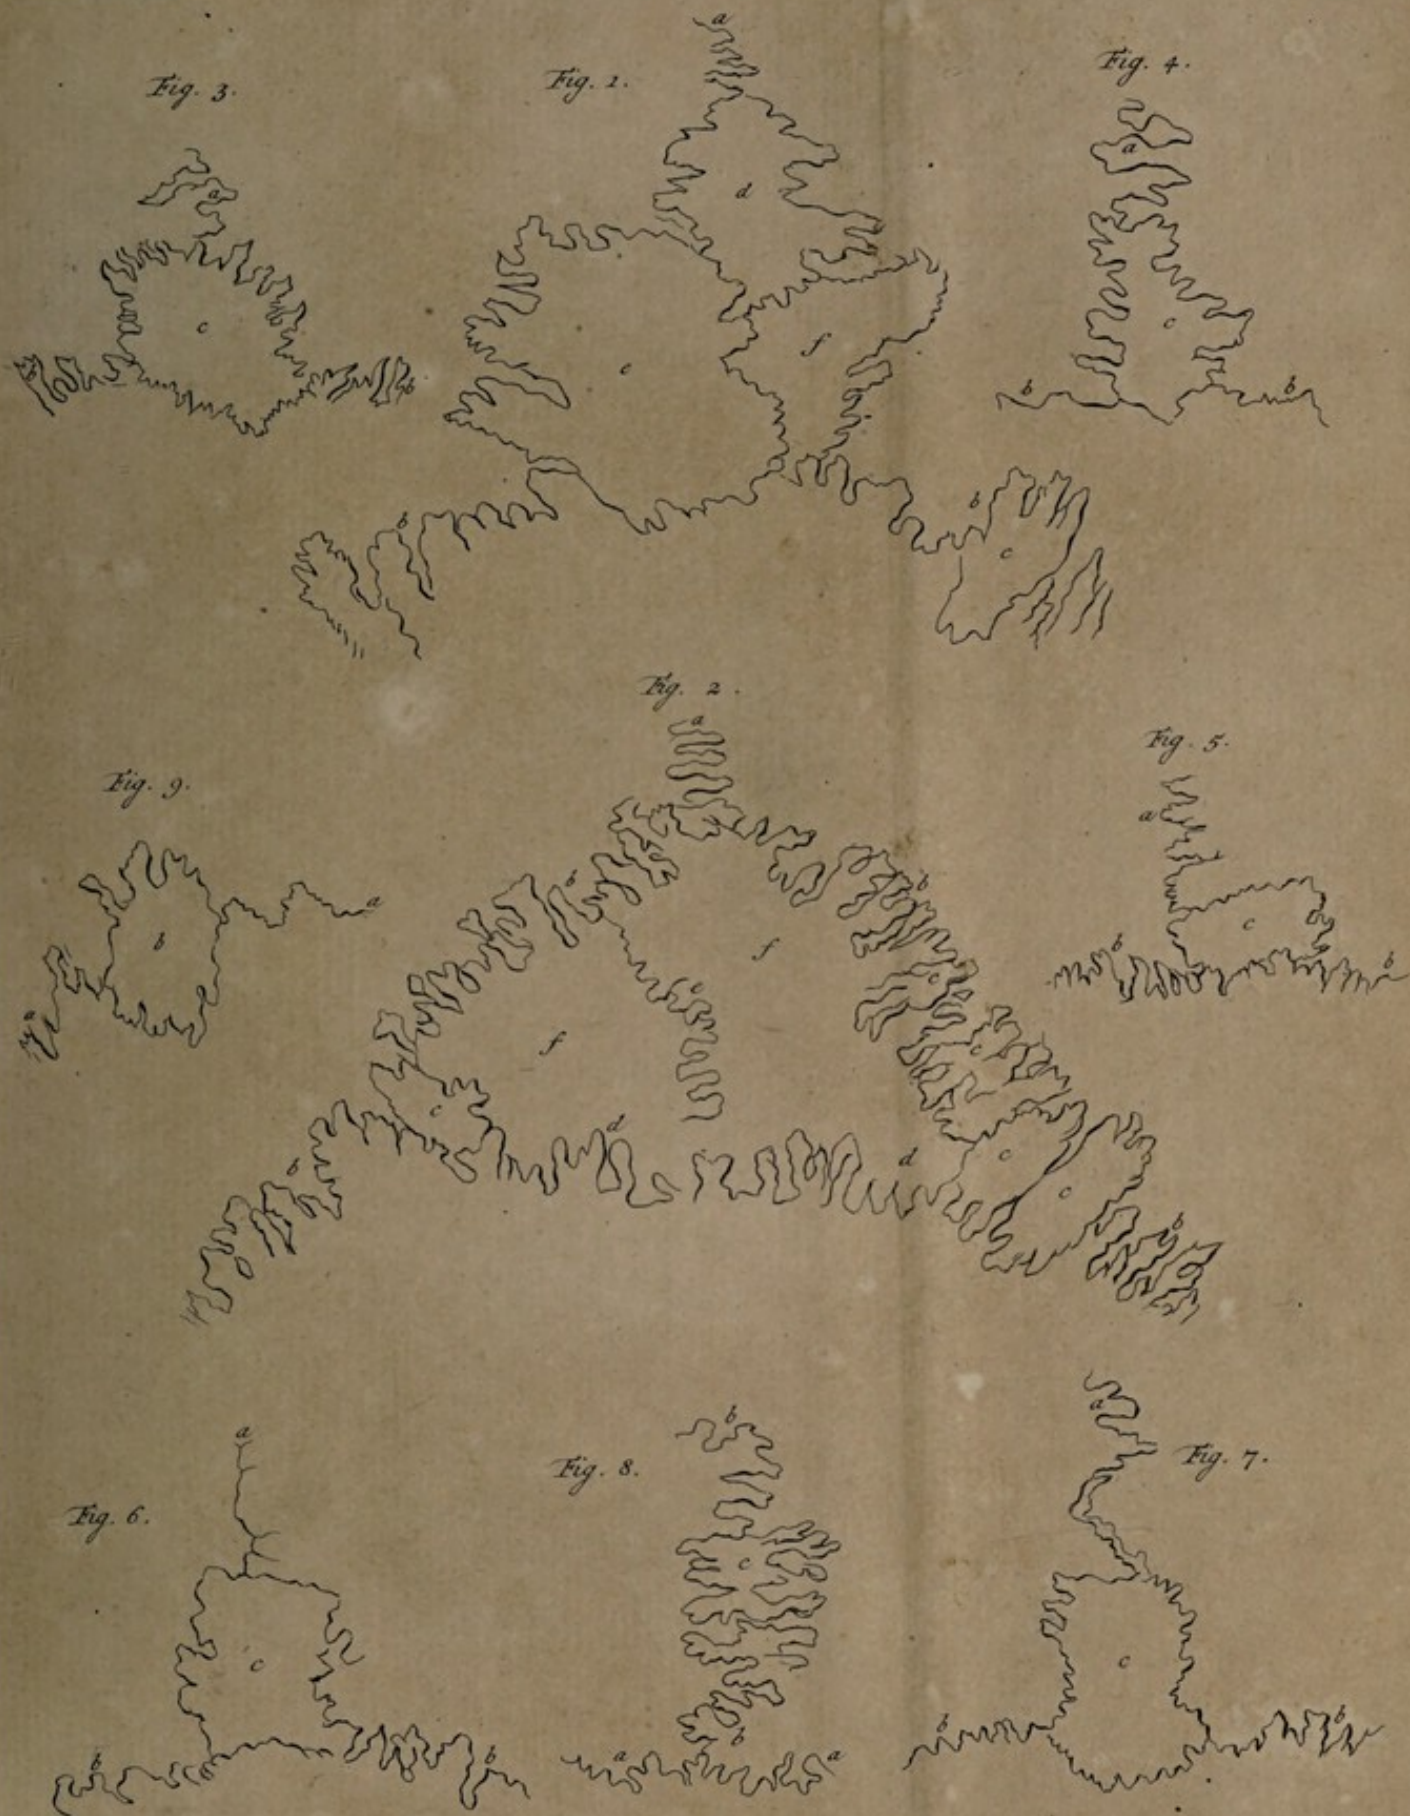 Fig. 3.
a
c
b
b
Fig. 1.
a
d
c
f
b
b
c
Fig. 4.
a
c
b
b
Fig. 2.
a
b
b
f
f
c
e
c
c
d
d
b
b
Fig. 9.
a
b
a
Fig. 5.
a
c
b
b
Fig. 6.
a
c
b
b
Fig. 8.
b
c
b
a
a
Fig. 7.
a
c
b
b